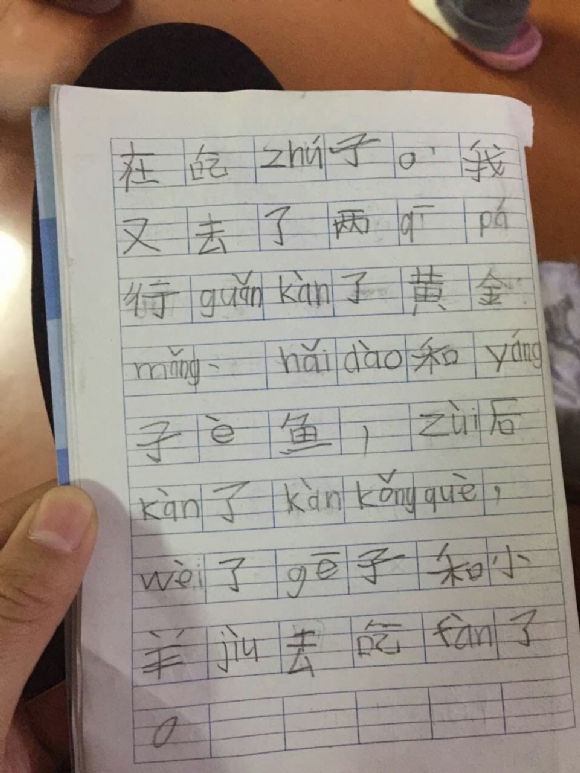 在吃zhú子。我
又去了两qī pá
行guǎn kàn了黄金
mǎng、hǎi dào和yáng
子è鱼,zuì后
kàn了kàn kǒng què,
wèi了gē子和小
羊jìu去吃fàn了
。